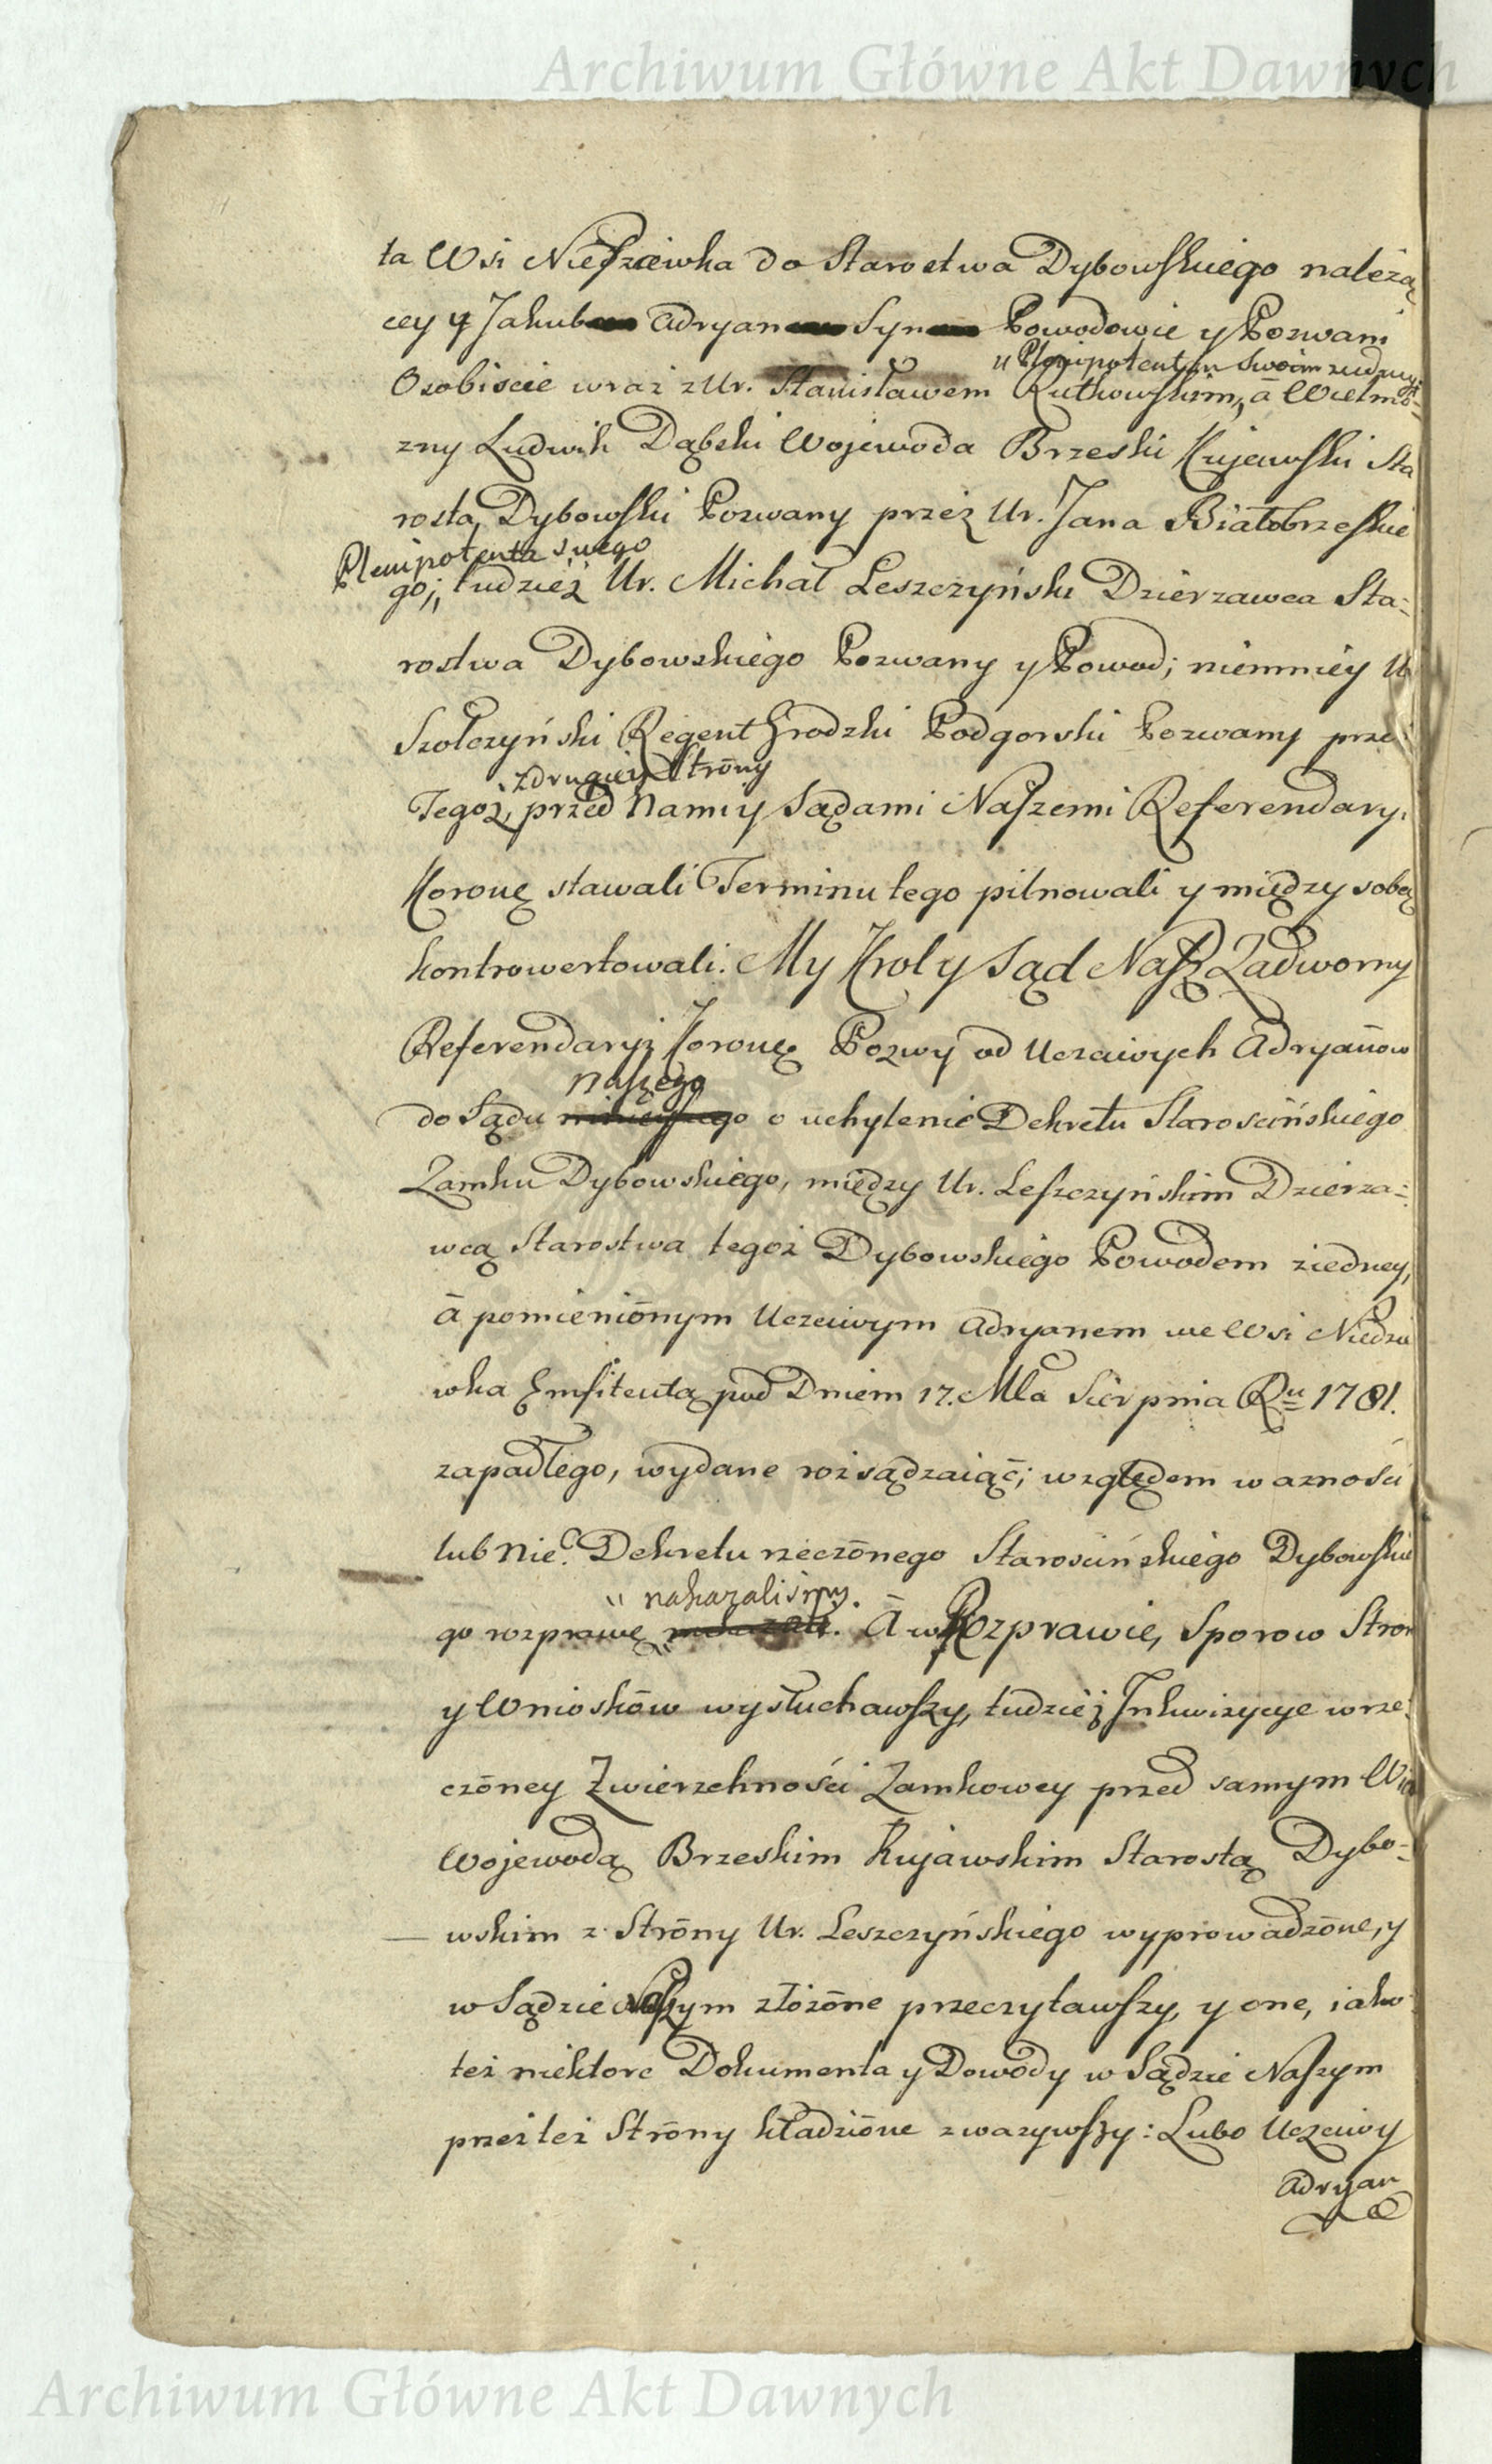 Archiwum Główne Akt Dawnych
ta Wsi Nieszewka do Starostwa Dybowskiego należą
cey y Jakub Adryan Syn Powodowie y Pozwani
" Plenipotentem Swoim z iedney
Osobiscie wraz z Ur. Stanisławem Rutkowskim, ā Wielmo-
żny Ludwik Dąbski Wojewoda Brzeski Kujawski Sta
rosta Dybowski Pozwany przez Ur. Jana Białobrzeskie
Plenipotenta swego
go; tudzież Ur. Michał Leszczyński Dzierzawca Sta-
rostwa Dybowskiego Pozwany y Powod; niemniey Ur
Szołczyński Regent Grodzki Podgorski Pozwany prze
z drugiey Strōny
Tegoż, przed Nami y Sądami Naszemi Referendary.
Koronę stawali Terminu tego pilnowali y między sobą
kontrowertowali. My Krol y Sąd Nasz Zadworny
Referendaryi Koronę Pozwy od Uczciwych Adryanow
naszego
do Sądu o uchylenie Dekretu Starościńskiego
Zamku Dybowskiego, między Ur. Leszczyńskim Dzierza-
wcą Starostwa tegoż Dybowskiego Powodem z iedney,
ā pomieniōnym Uczciwym Adryanem we Wsi Niedzie
wka Emfiteutą pod Dniem 17. Mca Sierpnia Ru 1781.
zapadłego, wydane rozsądzaiąć; względem ważności
lub Nie? Dekretu rzeczōnego Starościńskiego Dybowskie
" nakazalismy.
go rozprawę nakazali. Ā w Rozprawie, Sporow Stron
y Wnioskōw wysłuchawszy, tudzież Inkwizycye w rze-
czōney Zwierzchności Zamkowey przed samym Wm
Wojewodą Brzeskim Kujawskim Starostą Dybo-
wskim z Strōny Ur. Leszczyńskiego wyprowadzōne, y
w Sądzie Naszym złożōne przeczytawszy, y one, iako
też niektore Dokumenta y Dowody w Sądzie Naszym
przez też Strōny kładziōne zwazywszy: Lubo Uczciwy
Adryan
Archiwum Główne Akt Dawnych